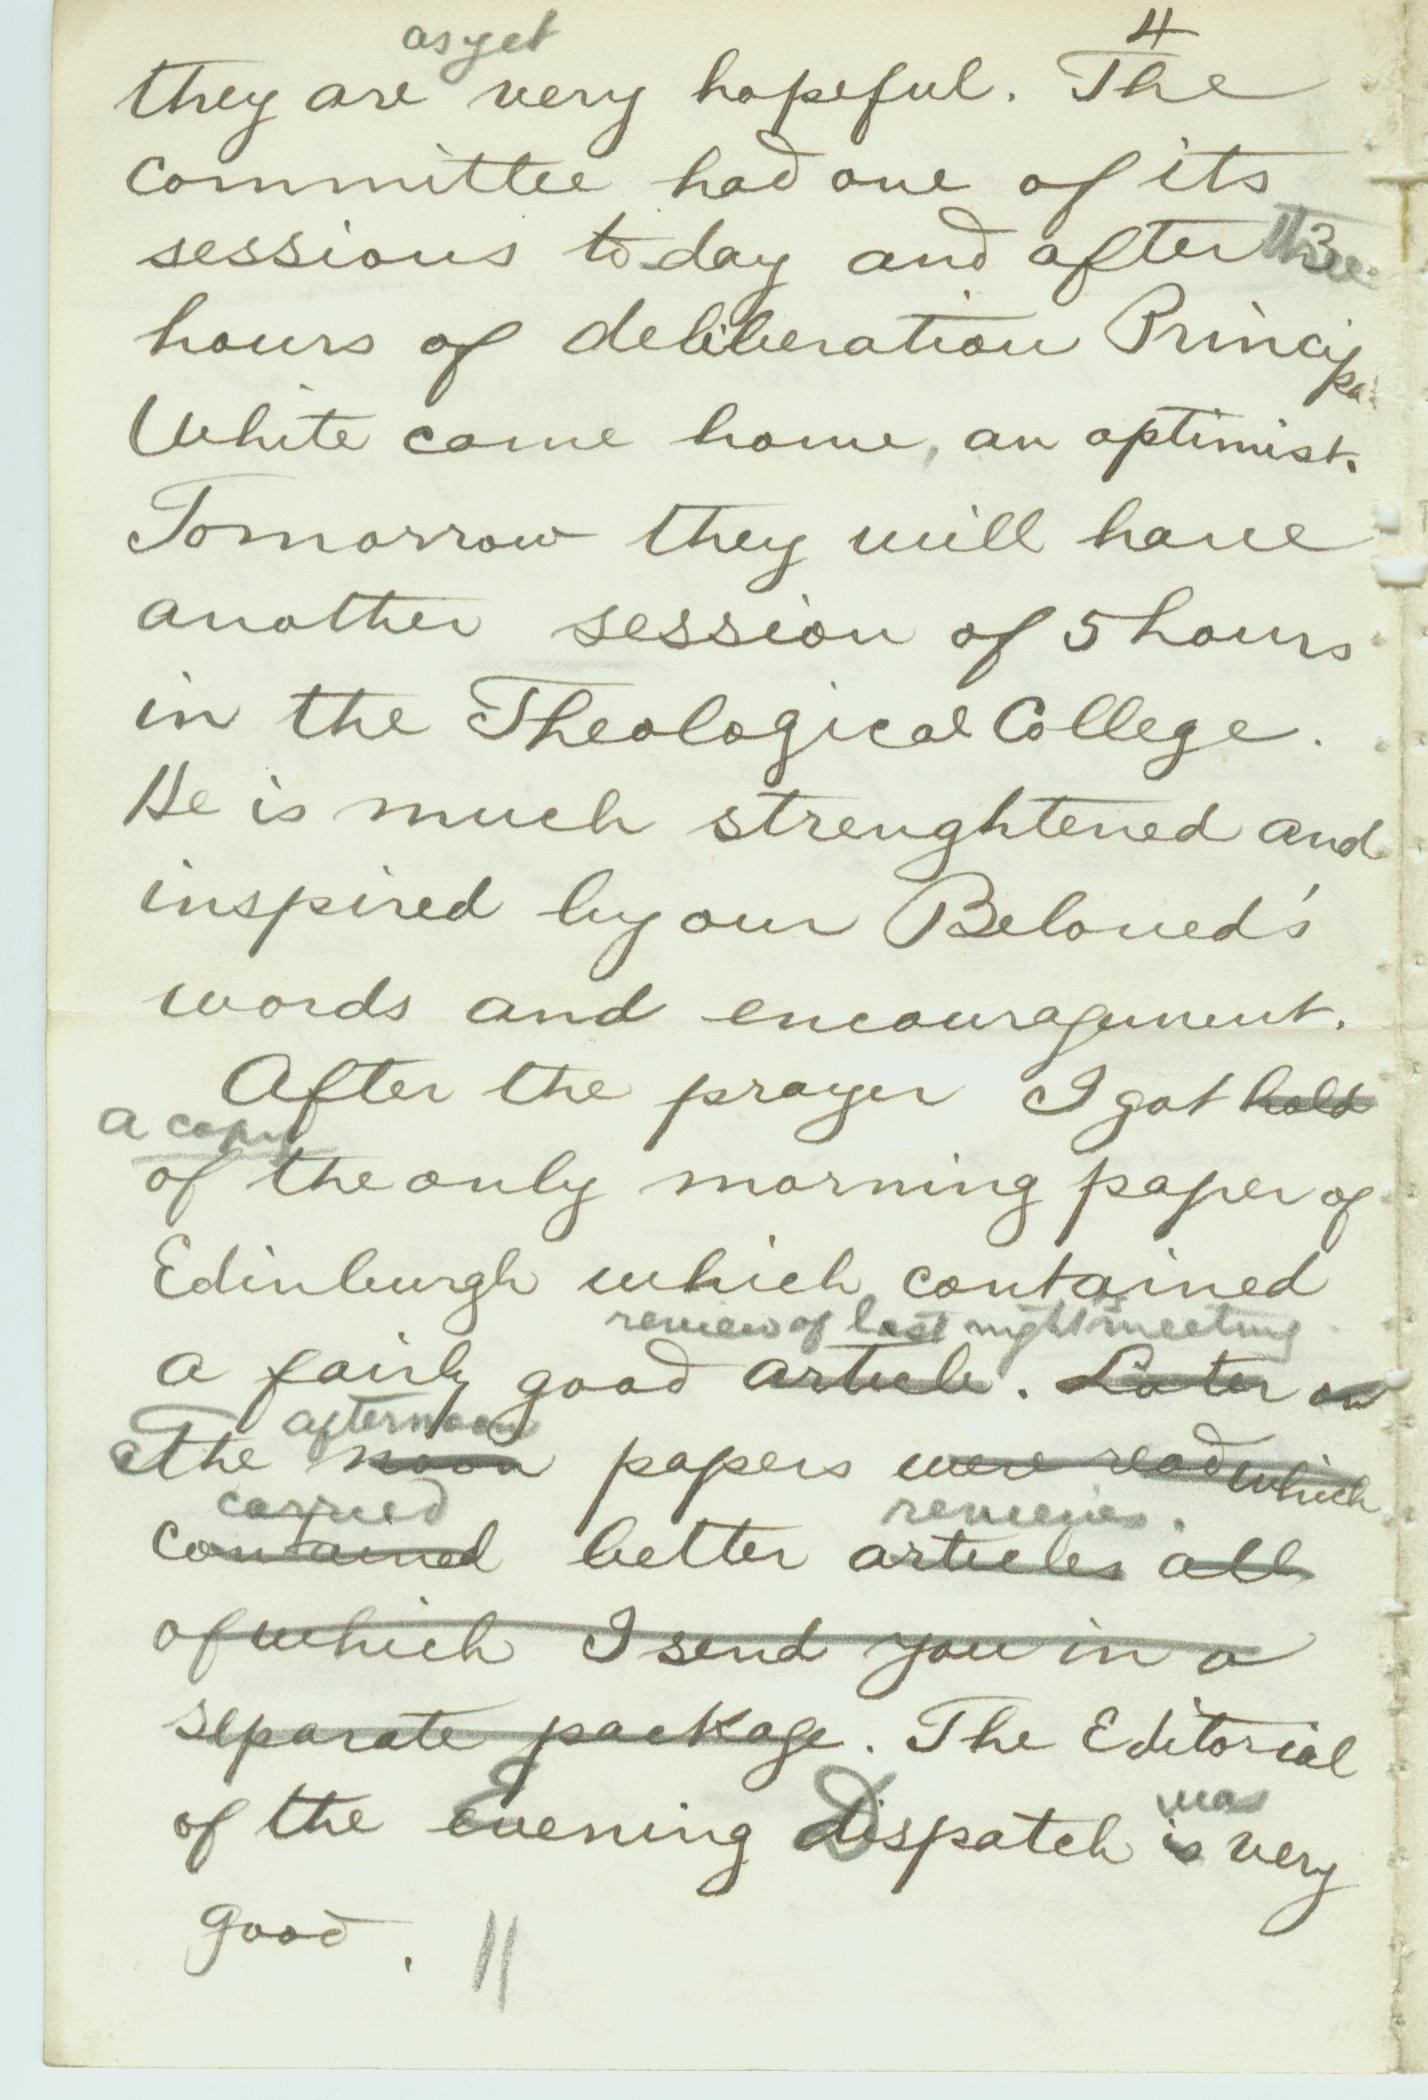 4
as yet
they are very hopeful. The
committee had one of its
sessions to-day and after three
hours of deliberation Principal
White came home, an optimist.
Tomorrow they will have
another session of 5 hours
in the Theological College.
He is much strenghtened and
inspired by our Beloved's
words and encouragement.
After the prayer I got hold
a copy
of the only morning paper of
Edinburgh which contained
review of last night's meeting
a fairly good article. Later on
afternoon
The noon papers were read which
carried reviews.
contained better articles all
of which I send you in a
separate package. The Editorial
was
of the Evening Dispatch is very
good. //